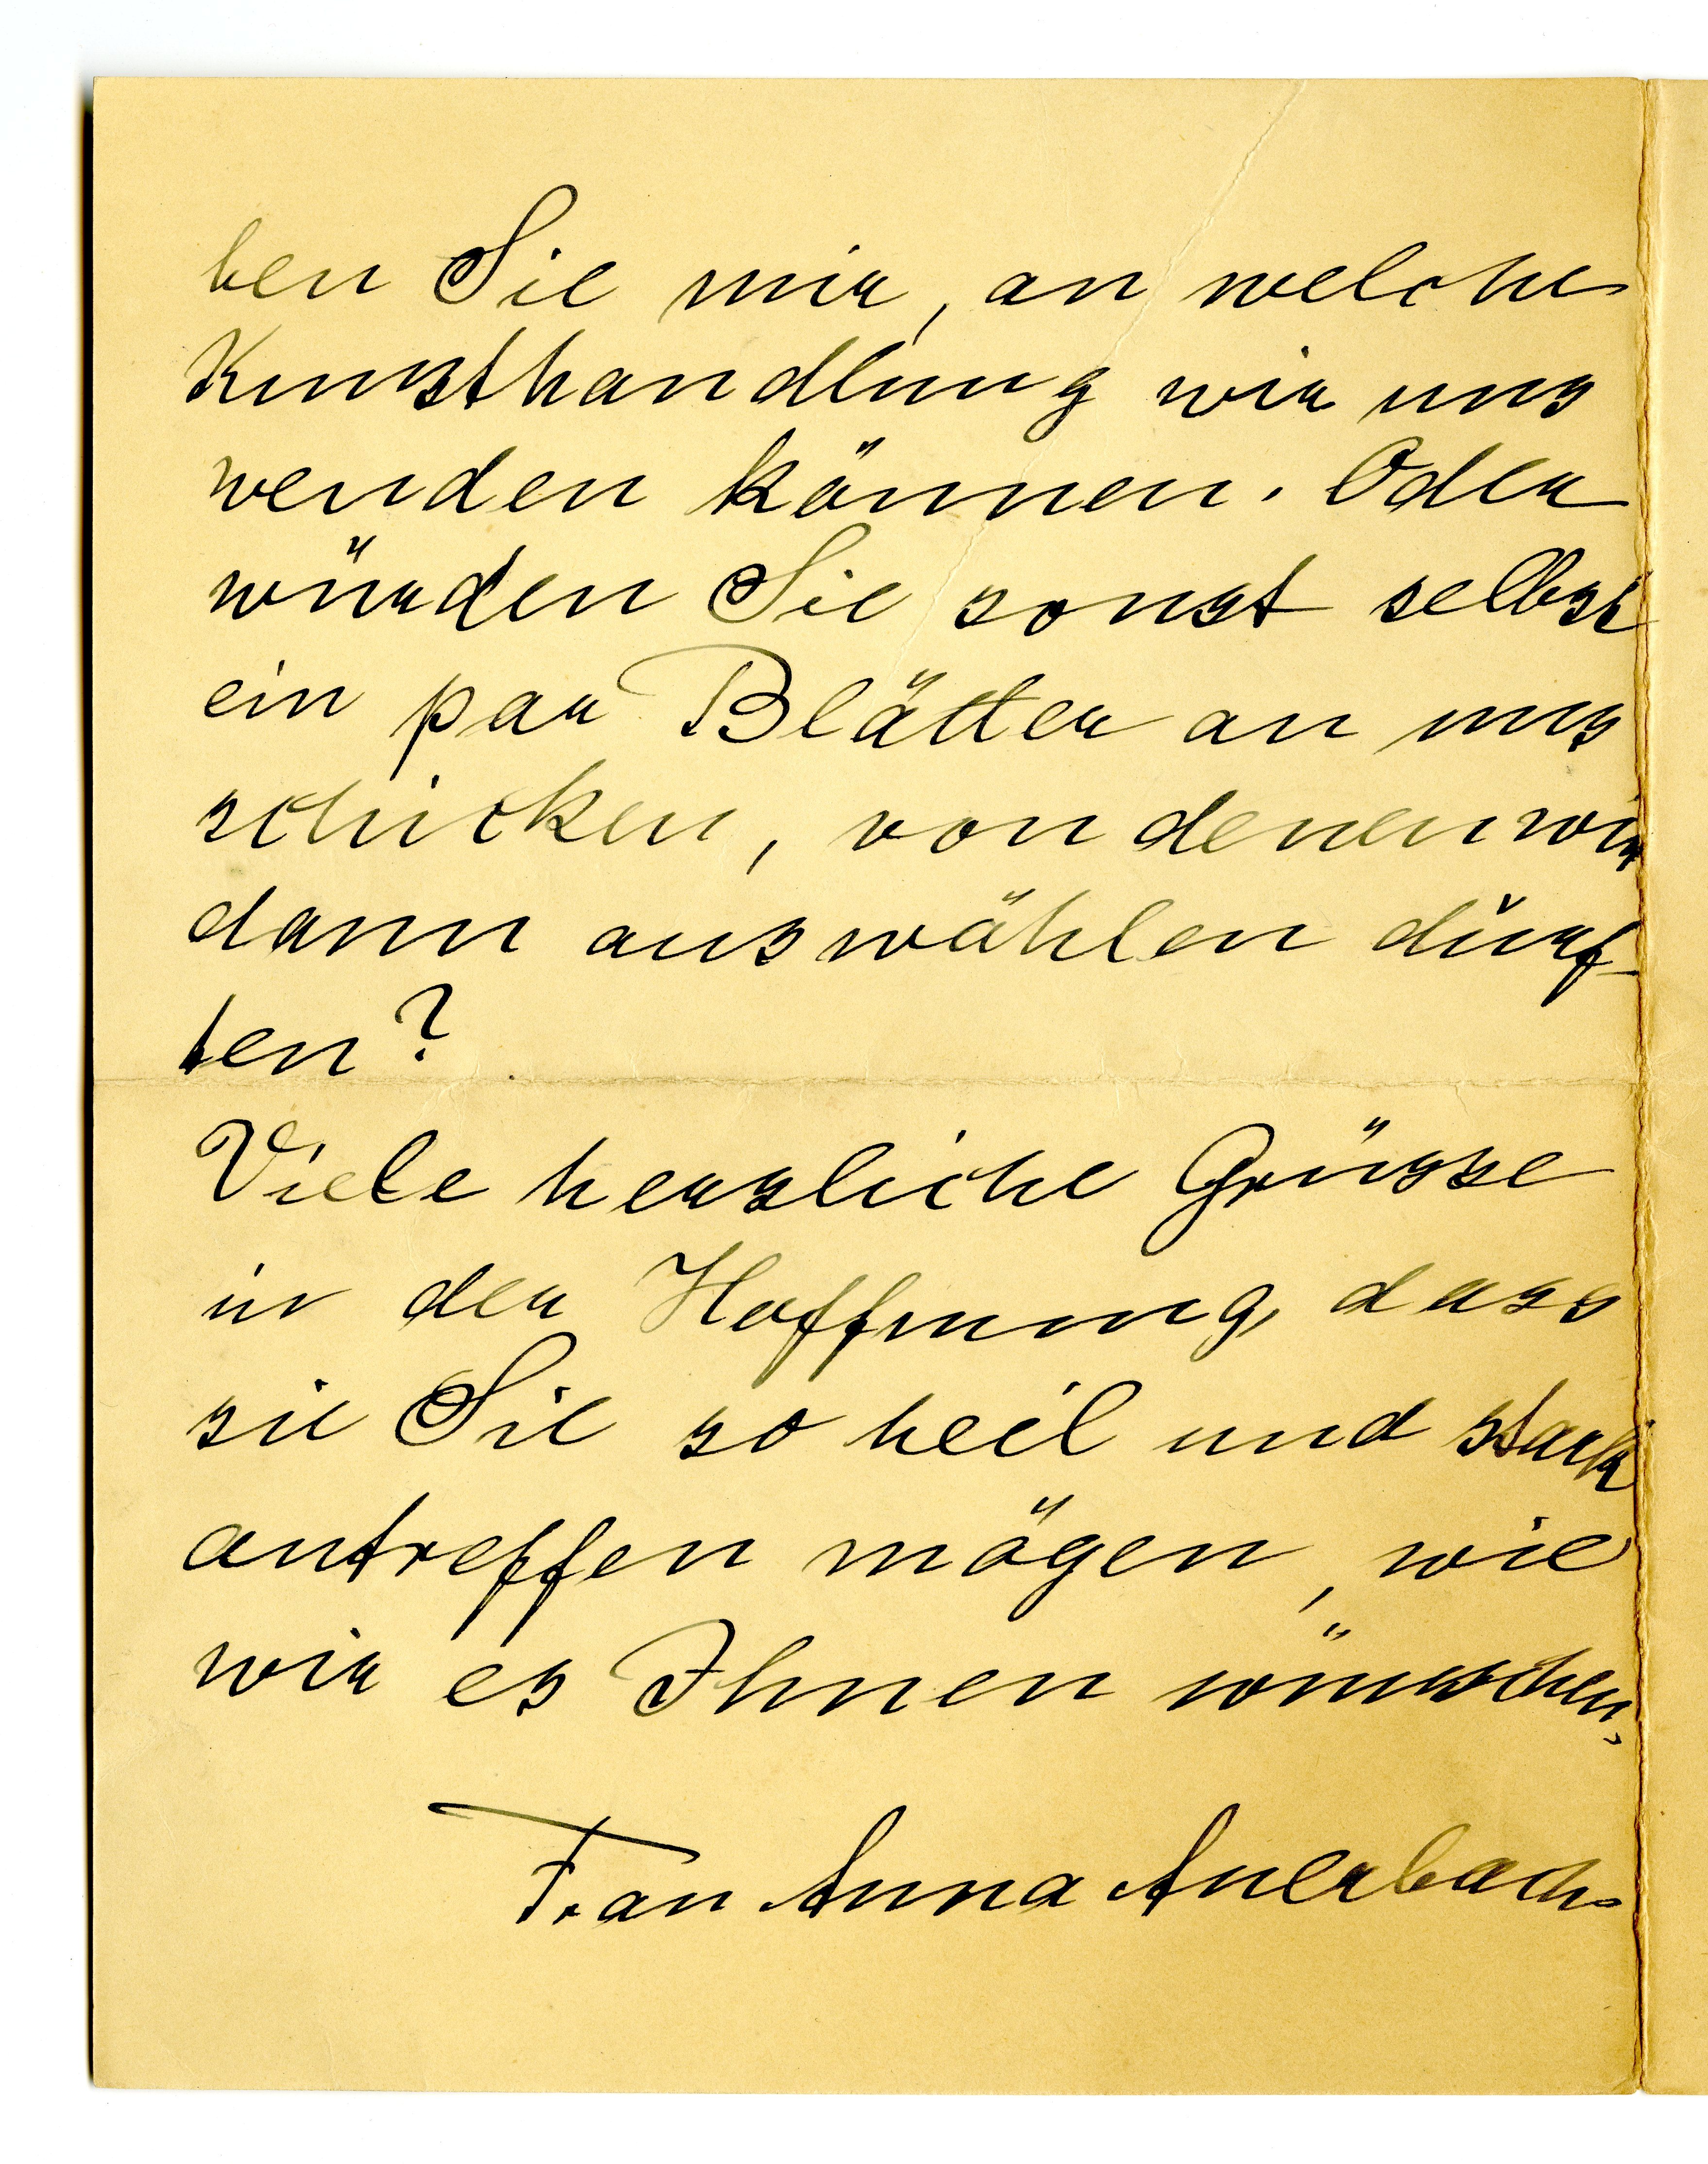 ben Sie mir, an welche
Kunsthandlung wir uns
wenden können. Oder
würden Sie sonst selbst
ein par Blätter an uns
schicken, von denen wir
dann auswählen dürf-
ten?
Viele herzliche Grüsse
in der Hoffnung, dass
sie Sie so heil und stark
antreffen mögen, wie
wir es Ihnen wünschen,
Frau Anna Auerbach